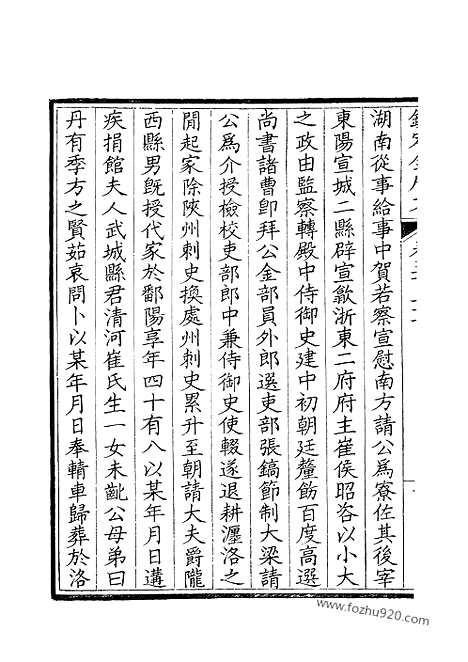 湖南從事給事中賀若察宣慰南方請公為寮佐其後宰
東陽宣城二縣辟宣歙浙東二府府主崔侯昭咨以小大
之政由監察轉殿中侍御史建中初朝廷釐飭百度高選
尚書諸曹卽拜公金部員外郎選吏部張鎬節制大梁請
公為介授檢校吏部郎中兼侍御史使輟遂退耕瀍洛之
閒起家除陝州刺史換處州刺史累升至朝請大夫爵隴
西縣男旣授代家於鄱陽享年四十有八以某年月日遘
疾捐館夫人武城縣君清河崔氏生一女未齔公母弟曰
丹有季方之賢茹哀問卜以某年月日奉輤車歸葬於洛
www.fozhu920.com